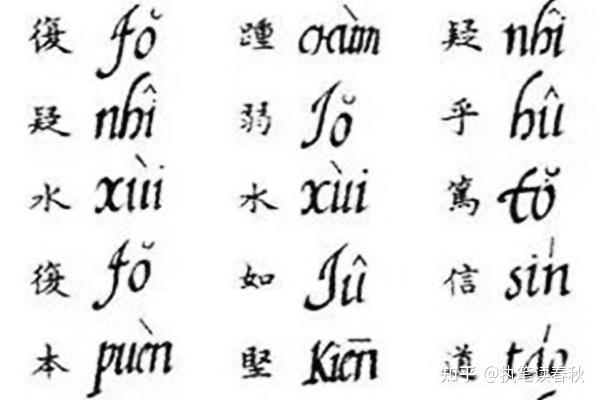 疑 nhî 乎 hû 篤 tŏ 信 sín 道 táo
踵 弱 Jŏ 水 xùi 如 Jû 堅 Kiēn
復 fŏ 疑 nhî 水 xùi 復 fŏ 本 puèn
知乎 @执笔读春秋